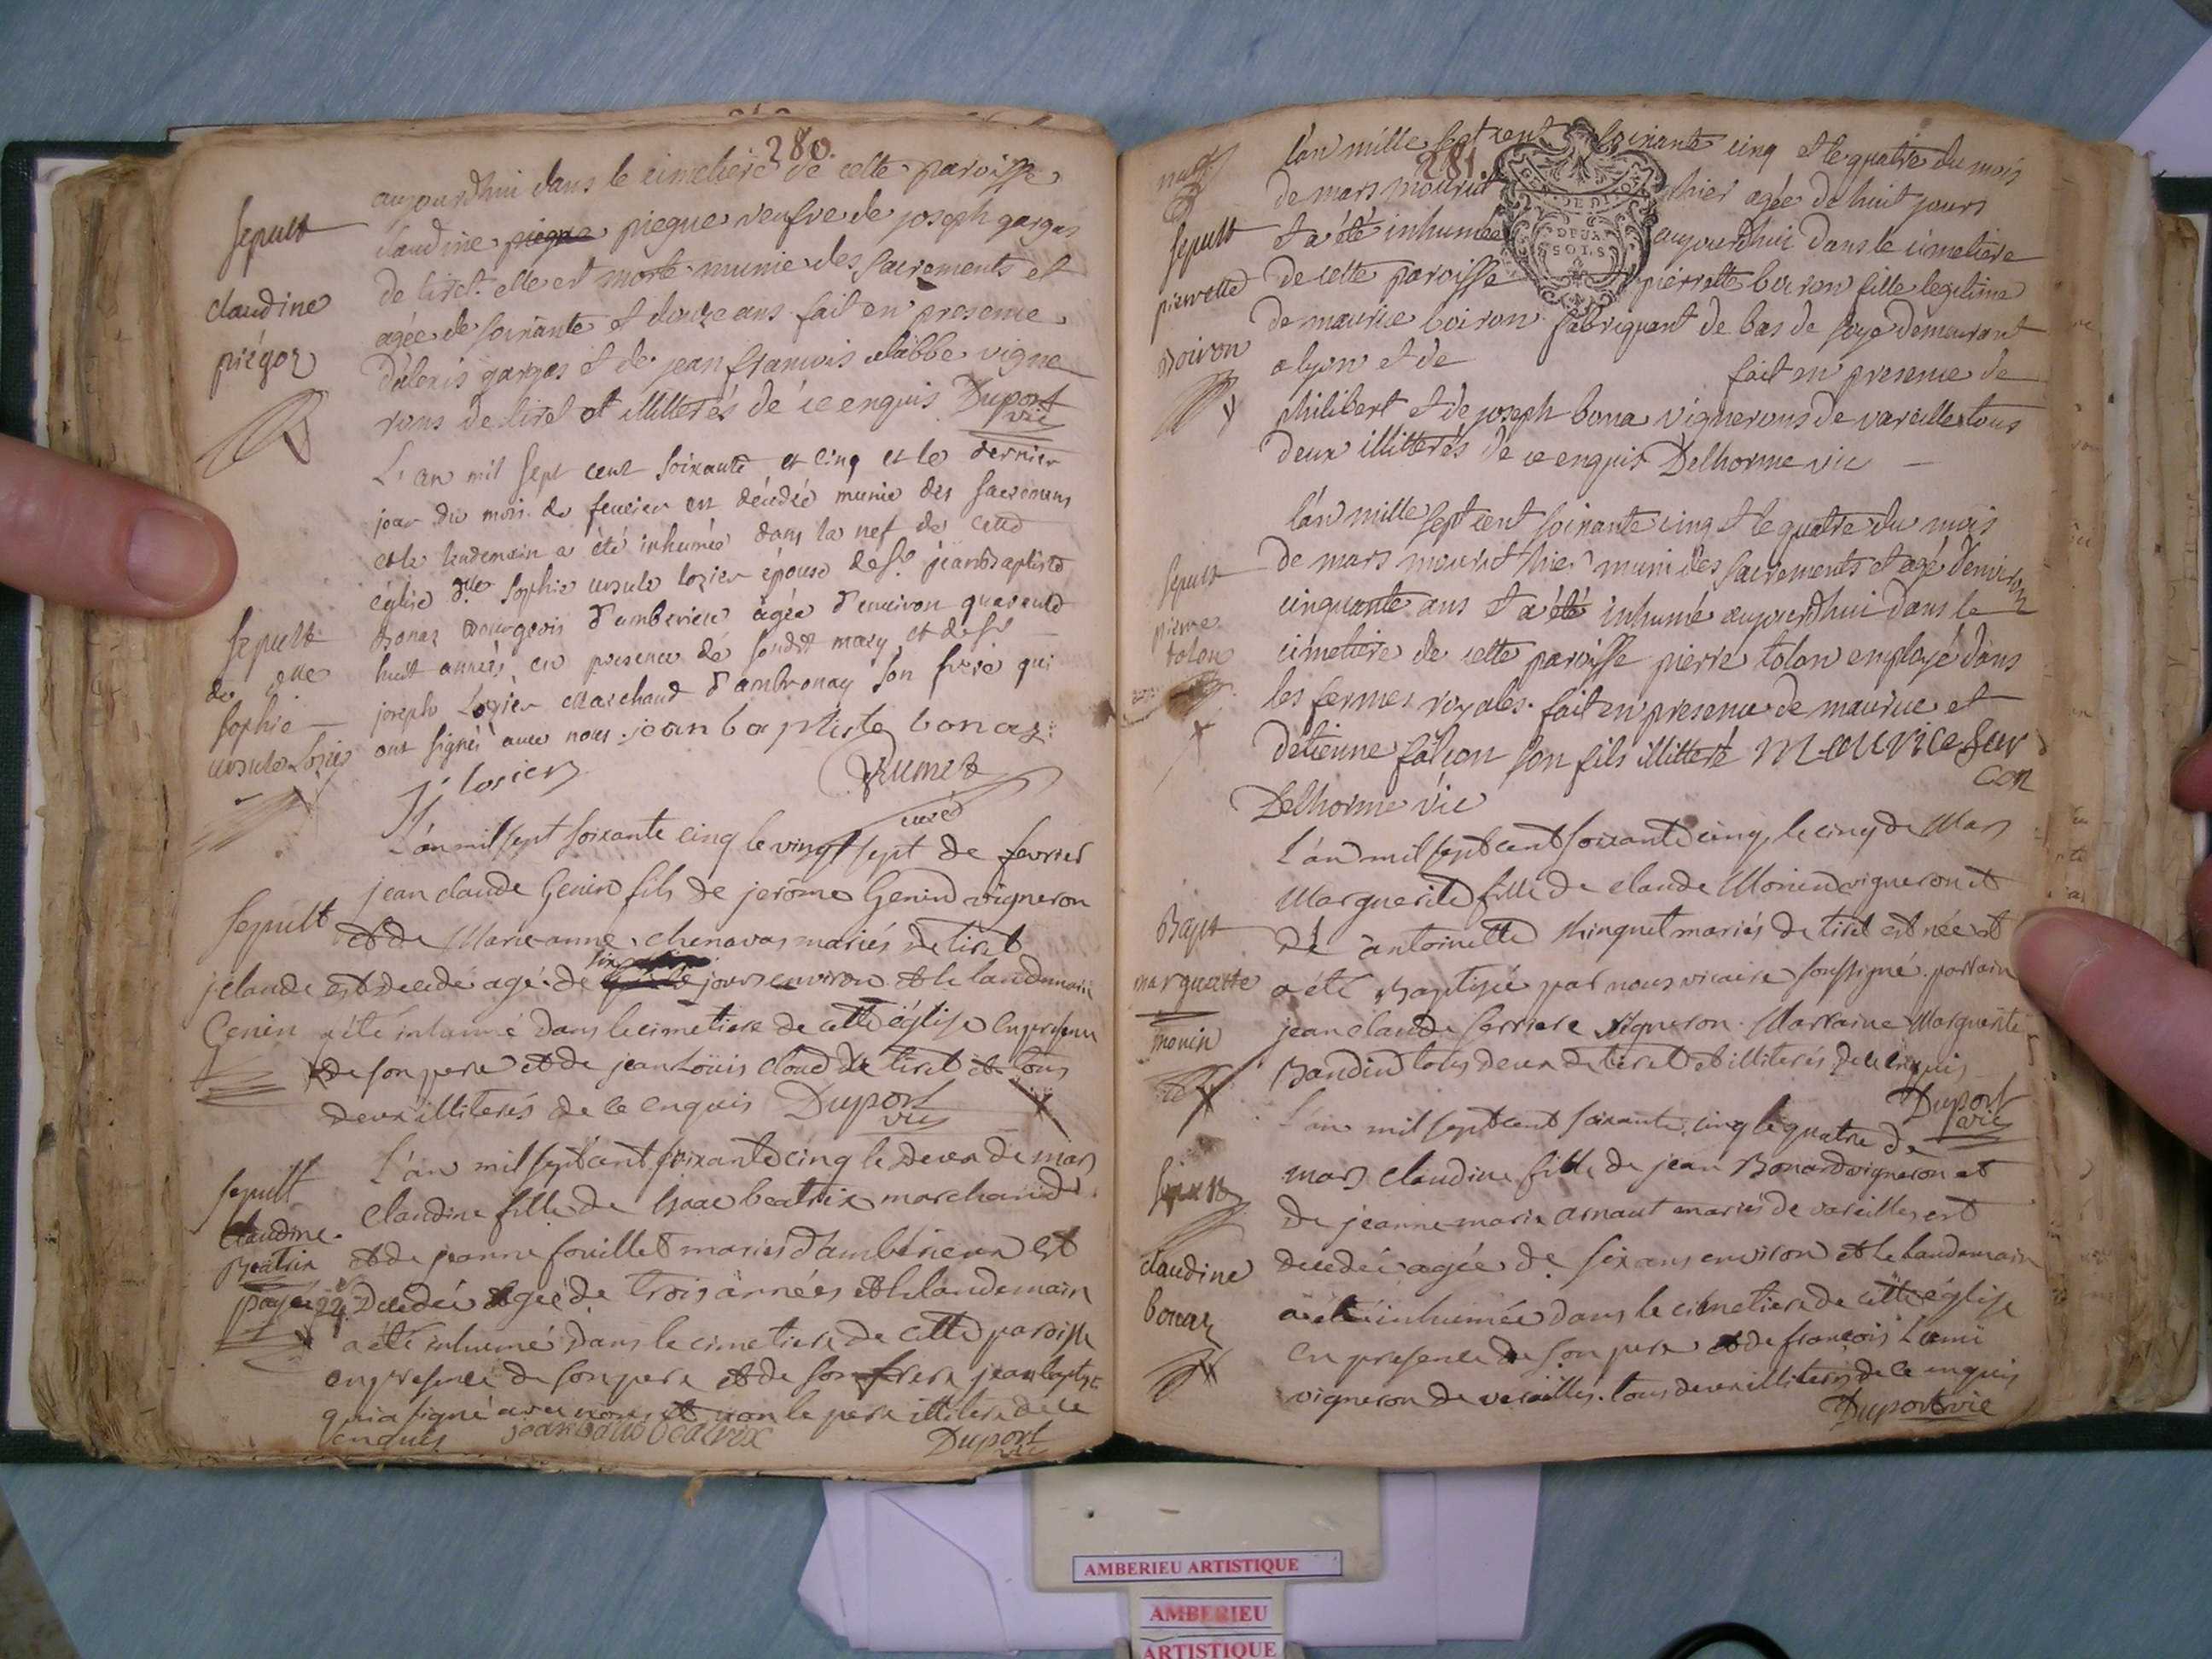 280.
aujourdhui dans le cimetiere de cette paroisse
Sepult
claudine
piégoz
claudine piegue veufve de joseph gargas
de tiret. elle est morte munie des sacrements et
agée de soixante et douze ans fait en presence
d'alexis gargas et de jean françois labbe vigne
rons de tiret et illitterés de ce enquis Dupont
vic
L'an mil sept cent soixante et cinq et le dernier
jour du mois de fevrier est décédée munie des sacremens
et le lendemain a été inhumée dans la nef de cette
église dlle Sophie ursule lozier épouse de Sr jean baptiste
Bonaz Bourgeois d'amberieu agée d'environ quarante
huit années, en presence de sondit mary et de Sr
joseph Lozier Marchand d'ambronay son frere qui
ont signés avec nous. jean baptiste bonaz
Sepult
de dlle
Sophie
ursule Lozier
J: losier
curé
L'an mil sept soixante cinq le vingt sept de fevrier
jean claude Genin fils de jerôme Genin vigneron
et de Marie anne chenavas mariés de tiret
est decedé agé de six jours environ et le landemain
a été inhumé dans le cimetiere de cette église en presence
de son pere et de jean Loüis cloud de tiret et tous
deux illiterés de ce enquis Dupont
vic
Sepult
j claude
Genin
L'an mil sept cent soixante cinq le deux de mars
claudine fille de Isaac beatrix marchand
et de jeanne fouillet mariés d'amberieux est
decedée agée de trois années et le landemain
a été inhumé dans le cimetiere de cette paroisse
en presence de son pere et de son frere jean baptiste
qui a signé avec nous et non le pere illiteré de ce
enquis jean batis beatrix Dupont
vic
Sepult
claudine
Beatrix
281.
l'an mille sept cent soixante cinq et le quatre du mois
de mars mourut hier agée de huit jours
et a été inhumée aujourdhui dans le cimetiere
de cette paroisse pierrette boiron fille legitime
de maurice boiron fabriquant de bas de soye demeurant
a lyon et de fait en presence de
philibert et de joseph bona vignerons de vareille tous
deux illitterés de ce enquis Delhorme vic
Sepult
pierrette
Boiron
GEN DE DIJON
DEUX
SOLS
l'an mille sept cent soixante cinq et le quatre du mois
de mars mourut hier muni des sacrements et agé d'environ
cinquante ans et a été inhumé aujourdhui dans le
cimetiere de cette paroisse pierre tolon employé dans
les fermes royales. fait en presence de maurice et
d'etienne falcon son fils illitteré Maurice
con
Delhorme vic
Sepult
pierre
tolon
L'an mil sept cent soixante cinq, le cinq de Mars
Marguerite fille de claude Monin vigneron et
de antoinette thinguet mariés de tiret est née et
a été Baptisée par nous vicaire soussigné. parrain
jean claude serriere vigneron. Marraine Marguerite
Baudin tous deux de tiret et illiterés de ce enquis
Dupont
vic
Bapt
marguerite
monin
L'an mil sept cent soixante cinq le quatre de
mars claudine fille de jean Bonard vigneron et
de jeanne marie arnaut mariés de vareilles est
decedée agée de six ans environ et le landemain
a été inhumée dans le cimetiere de cette église
en presence de son pere et de françois Lami
vigneron de vareilles. tous deux illiterés de ce enquis
Dupont vic
Sepult
claudine
bonaz
AMBERIEU ARTISTIQUE
AMBERIEU
ARTISTIQUE